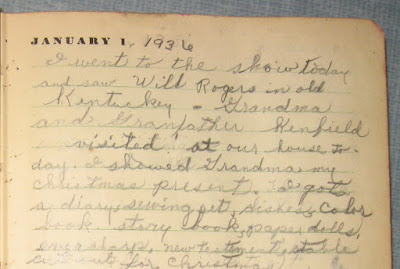 JANUARY 1, 1936
I went to the show today
and saw Will Rogers in old
Kentuckey - Grandma
and Granfather Kenfield
visited at our house to-
day. I showed Grandma my
christmas present. I got
a diary, sewing set, dishes, color
book, story book, paper dolls,
eversharp, new testament, stable
cutouts for christmas.